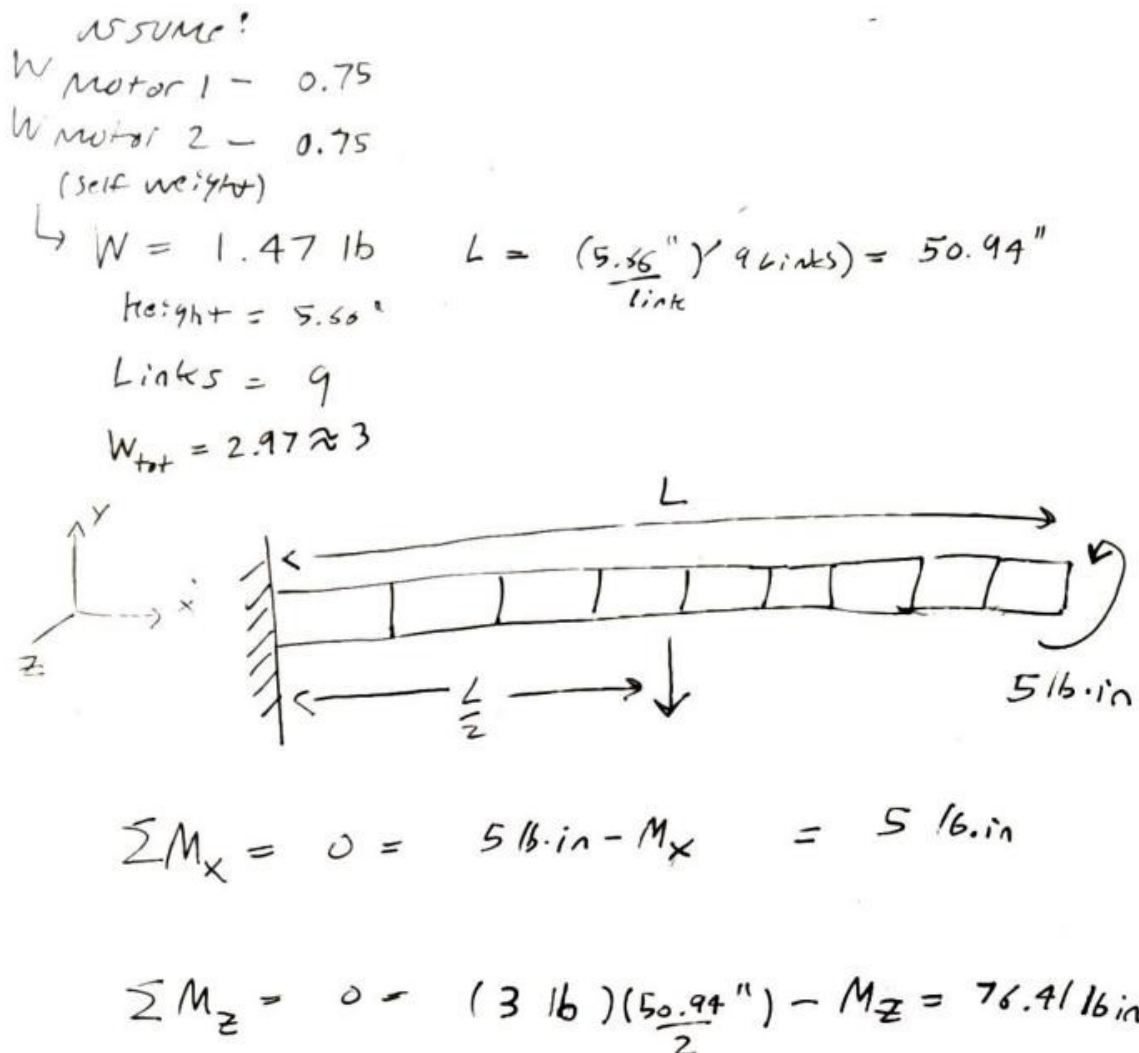 ASSUME:
W Motor 1 - 0.75
W Motor 2 - 0.75
(self weight)
↳ W = 1.47 lb L = (5.66"/link)(9 Links) = 50.94"
Height = 5.66"
Links = 9
W_tot = 2.97 ≈ 3
L
y
x
z
L/2
5 lb·in
ΣM_x = 0 = 5 lb·in - M_x = 5 lb.in
ΣM_z = 0 = (3 lb)(50.94"/2) - M_z = 76.41 lb in